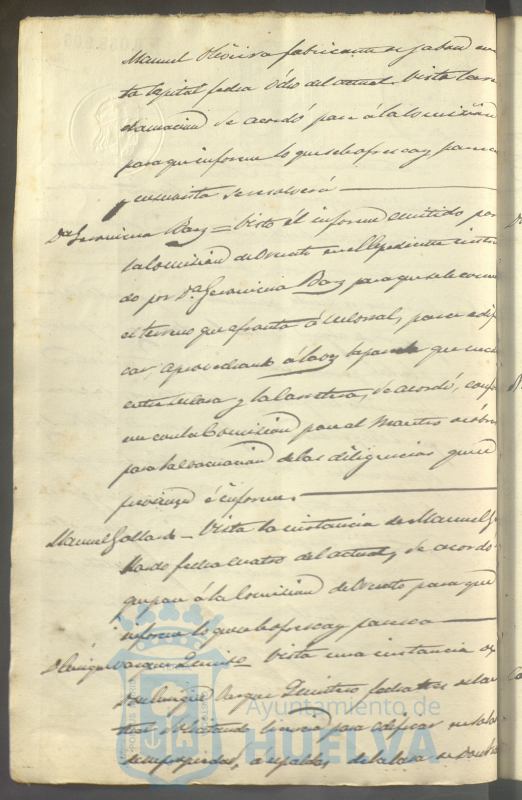 Manuel Oliveira fabricante de jabon en es
ta Capital fecha ocho del actual. Vista la re
clamacion se acordó pase á la Comision
para que informe lo que se le ofresca y paresca
y en su vista se resolverá
Dª Geronima Baz = Visto el informe emitido por
la Comision del Ornato en el Espediente instrui
do por Dª Geronima Baz para que se le conceda
el terreno que afronta á su corral, para edifi
car, aprovechando á la vez la parte que
entre su casa y la Carretera, se acordó, confor
me con la Comision pase al Maestro de obras
para la evacuacion de las diligencias que se
é informe.
Manuel Gallardo = Vista la instancia de Manuel Ga
llardo fecha cuatro del actual, se acordó
que pase á la Comision del Ornato para que
informe lo que se le ofresca y paresca
D. Enrique Vazquez Quintero Vista una instancia de
Don Enrique Vazquez Quintero fecha tres del ac
tual solicitando licencia para edificar un solar
de su propiedad, á espaldas de la casa de Don
Ayuntamiento de
HUELVA